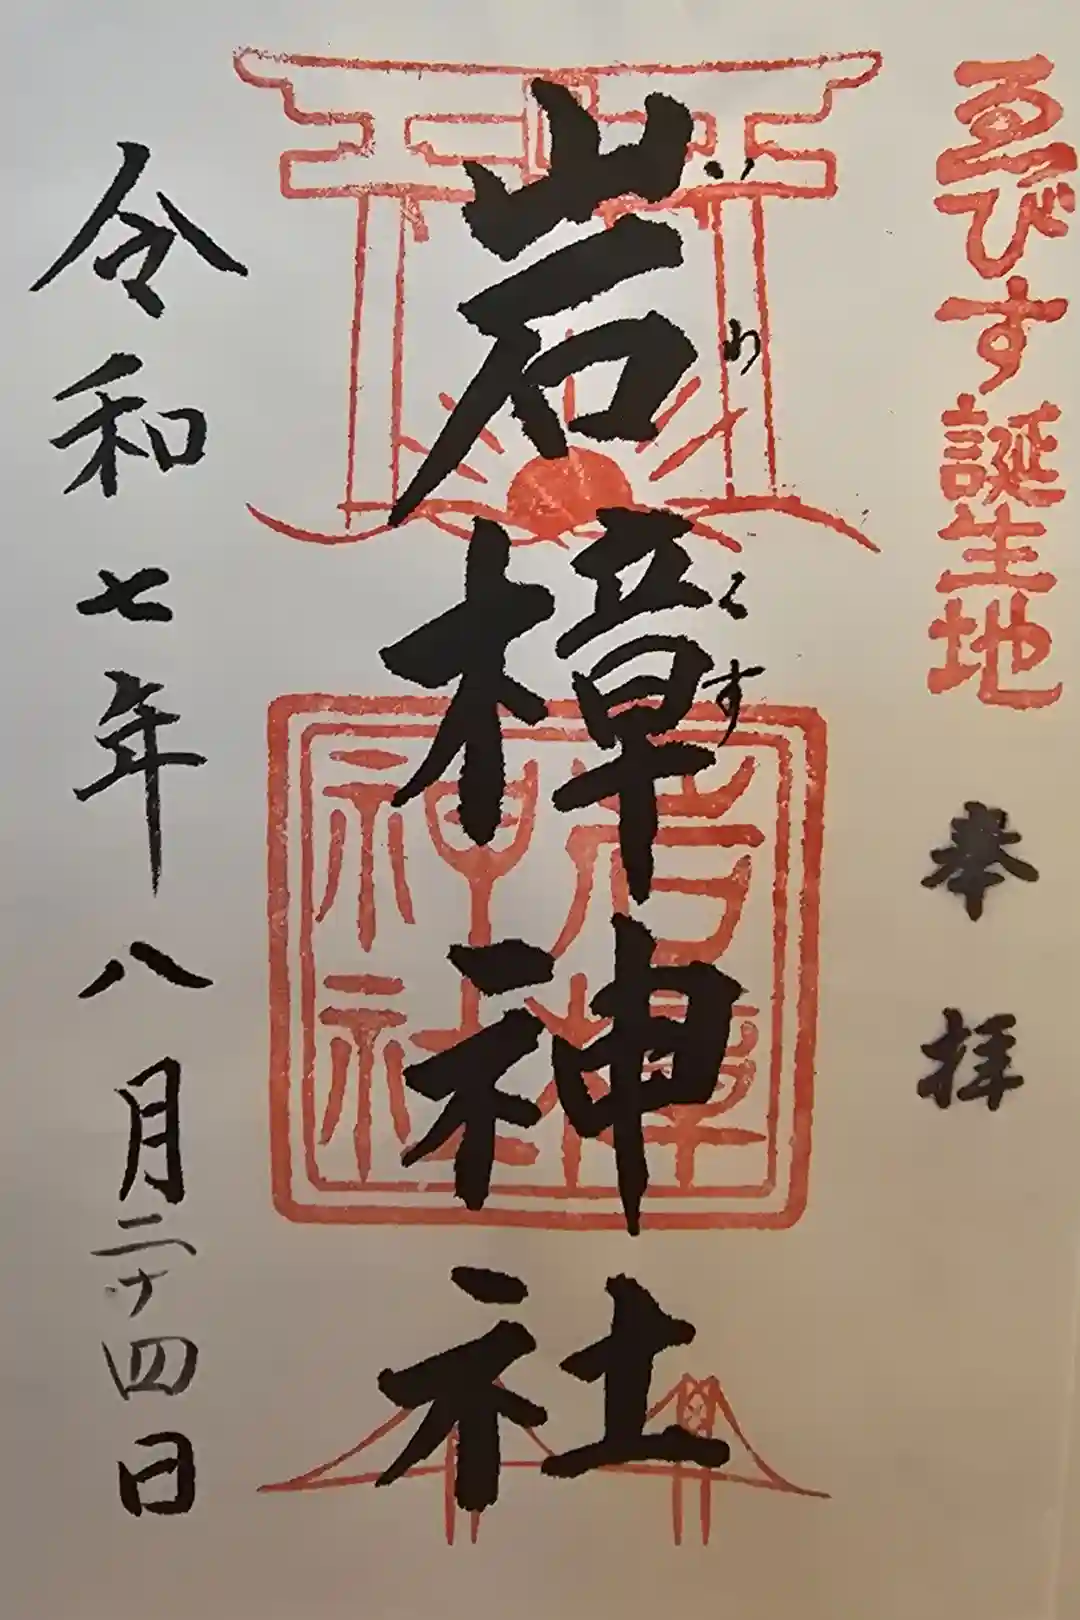 ゑびす誕生地
奉拝
岩樟神社
いわくす
岩樟
神社
令和七年八月二十四日